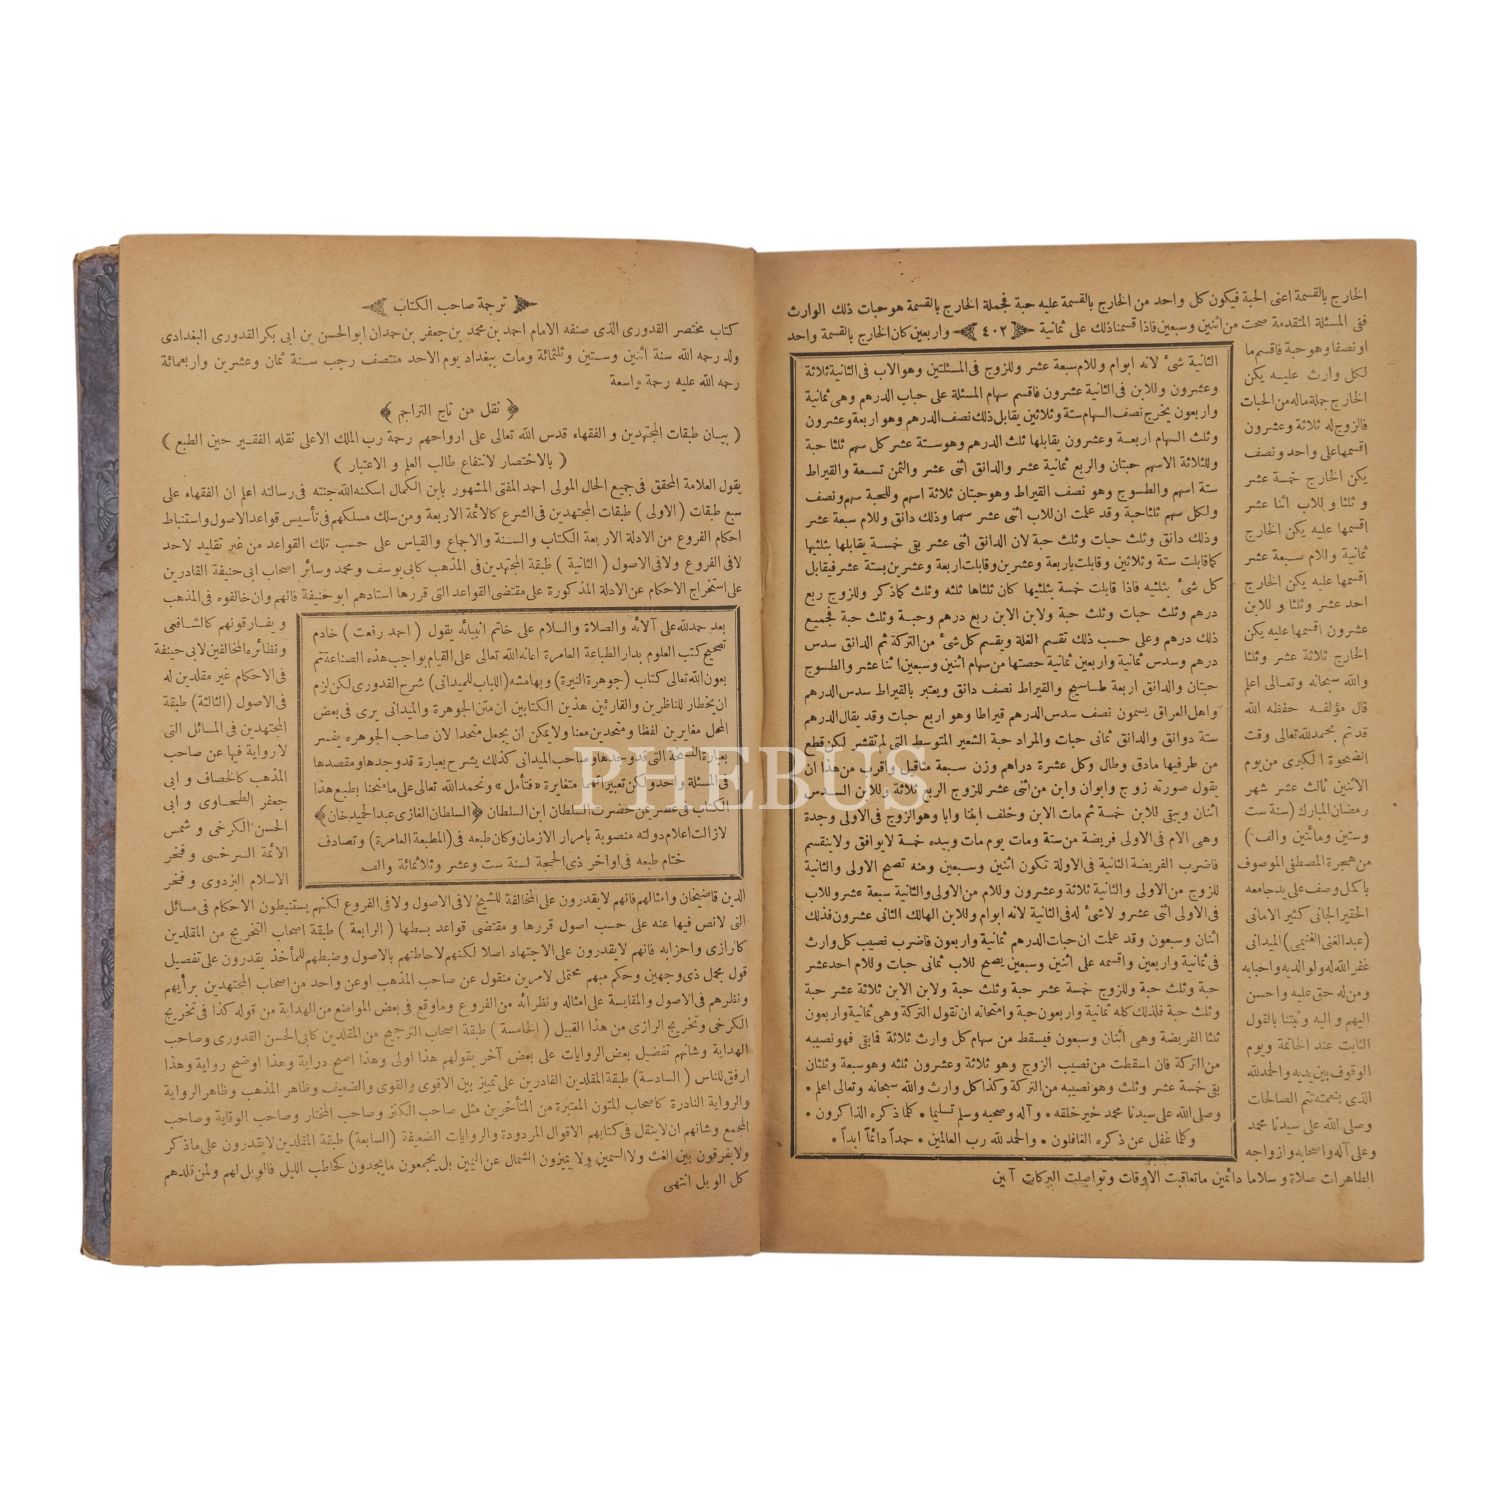 الخارج بالقسمة اعنى الحبة فيكون كل واحد من الخارج بالقسمة عليه حبة فجملة الخارج بالقسمة هو حبات ذلك الوارث
ففى المسئلة المتقدمة صحت من اثنين وسبعين فاذا قسمنا ذلك على ثمانية ﴿٤٠٢﴾ واربعين كان الخارج بالقسمة واحد
او نصفا وهو حبة فاقسم ما
لكل وارث عليه يكن
الخارج جملة ماله من الحبات
فالزوج له ثلاثة وعشرون
اقسمها على واحد ونصف
يكن الخارج خمسة عشر
وثلثا وللاب اثنا عشر
اقسمها عليه يكن الخارج
ثمانية وللام سبعة عشر
اقسمها عليه يكن الخارج
احد عشر وثلثا وللابن
عشرون اقسمها عليه يكن
الخارج ثلاثة عشر وثلثا
والله سبحانه وتعالى اعلم
قال مؤلفه حفظه الله
قد تم بحمد لله تعالى وقت
الضحوة الكبرى من يوم
الاثنين ثالث عشر شهر
رمضان المبارك (سنة ست
وستين ومائتين والف)
من هجرة المصطفى الموصوف
باكمل وصف على يد جامعه
الحقير الجانى كثير الامانى
(عبد الغنى الغنيمى) الميدانى
غفر الله له ولوالديه واحبابه
ومن له حق عليه واحسن
اليهم واليه وثبتنا بالقول
الثابت عند الخاتمة ويوم
الوقوف بين يديه والحمد لله
الذى بنعمته تتم الصالحات
وصلى الله على سيدنا محمد
وعلى آله واصحابه وازواجه
الطاهرات صلاة وسلاما دائمين ما تعاقبت الاوقات وتواصلت البركات آمين
الثانية شئ لانه ابوام وللام سبعة عشر وللزوج فى المسئلتين وهو الاب فى الثانية ثلاثة
وعشرون وللابن فى الثانية عشرون فاقسم سهام المسئلة على حباب الدرهم وهى ثمانية
واربعون يخرج نصف السهام ستة وثلاثين يقابل ذلك نصف الدرهم وهو اربعة وعشرون
وثلث السهام اربعة وعشرون يقابلها ثلث الدرهم وهو ستة عشر كل سهم ثلثا حبة
وللثلاثة الاسهم حبتان والربع ثمانية عشر والدانق اثنى عشر والثمن تسعة والقيراط
ستة اسهم والطسوج وهو نصف القيراط وهو حبتان ثلاثة اسهم وللحبة سهم ونصف
ولكل سهم ثلثا حبة وقد علمت ان للاب اثنى عشر سهما وذلك دانق وللام سبعة عشر
وذلك دانق وثلث حبات وثلث حبة لان الدانق اثنى عشر بقى خمسة يقابلها بثلثيها
كما قابلت ستة وثلاثين وقابلت باربعة وعشرين وقابلت اربعة وعشرين بستة عشر فيقابل
كل شئ بثلثيه فاذا قابلت خمسة بثلثيها كان ثلثاها ثلثه وثلث كما ذكر وللزوج ربع
درهم وثلث حبات وثلث حبة وللابن الابن ربع درهم وحبة وثلث حبة فجميع
ذلك درهم وعلى حسب ذلك تقسم الغلة ويقسم كل شئ من التركة ثم الدانق سدس
درهم وسدس ثمانية واربعين ثمانية حصتها من سهام اثنين وسبعين اثنا عشر والطسوج
حبتان والدانق اربعة طساسيج والقيراط نصف دانق ويعتبر بالقيراط سدس الدرهم
واهل العراق يسمون نصف سدس الدرهم قيراطا وهو اربع حبات وقد يقال الدرهم
ستة دوانق والدانق ثمانى حبات والمراد حبة الشعير المتوسط التى لم تقشر لكن قطع
من طرفيها مادق وطال وكل عشرة دراهم وزن سبعة مثاقيل واقرب من هذا ان
يقول صورته زوج وابوان وابن من اثنى عشر للزوج الربع ثلاثة وللابن السدس
اثنان ويبقى للابن خمسة ثم مات الابن وخلف ابنتا وابا وهو الزوج فى الاولى وجدة
وهى الام فى الاولى فريضة من ستة ومات يوم مات وبيده خمسة لا يوافق ولا ينقسم
فاضرب الفريضة الثانية فى الاولة تكون اثنين وسبعين ومنه تصح الاولى والثانية
للزوج من الاولى والثانية ثلاثة وعشرون وللام من الاولى والثانية سبعة عشر وللاب
فى الاولى اثنى عشر ولا شئ له فى الثانية لانه ابوام وللابن الهالك الثانى عشرون فذلك
اثنان وسبعون وقد علمت ان حبات الدرهم ثمانية واربعون فاضرب نصيب كل وارث
فى ثمانية واربعين واقسمه على اثنين وسبعين يصح للاب ثمانى حبات وللام احد عشر
حبة وثلث حبة وللزوج خمسة عشر حبة وثلث حبة ولابن الابن ثلاثة عشر حبة
وثلث حبة فلذلك كله ثمانية واربعون حبة وامتحانه ان تقول التركة وهى ثمانية واربعون
ثلثا الفريضة وهى اثنان وسبعون فيسقط من سهام كل وارث ثلاثة فما بقى فهو نصيبه
من التركة فان اسقطت من نصيب الزوج وهو ثلاثة وعشرون ثلثه وهو سبعة وثلثان
بقى خمسة عشر وثلث وهو نصيبه من التركة وكذا كل وارث والله سبحانه وتعالى اعلم *
وصلى الله على سيدنا محمد خير خلقه * وآله وصحبه وسلم تسليما * كلما ذكره الذاكرون *
وكلما غفل عن ذكره الغافلون * والحمد لله رب العالمين * حمداً دائماً ابداً *
ترجمة صاحب الكتاب
كتاب مختصر القدورى الذى صنفه الامام احمد بن محمد بن جعفر بن حمدان ابوالحسن بن ابى بكر القدورى البغدادى
ولد رحمه الله سنة اثنين وستين وثلثمائة ومات ببغداد يوم الاحد منتصف رجب سنة ثمان وعشرين واربعمائة
رحمه الله عليه رحمة واسعة
﴿ نقل من تاج التراجم ﴾
( بيان طبقات المجتهدين و الفقهاء قدس الله تعالى على ارواحهم رحمة رب الملك الاعلى نقله الفقير حين الطبع )
( بالاختصار لانتفاع طالب العلم و الاعتبار )
يقول العلامة المحقق فى جميع الحال المولى احمد المفتى المشهور بابن الكمال اسكنه الله جنته فى رسالته اعلم ان الفقهاء على
سبع طبقات (الاولى) طبقات المجتهدين فى الشرع كالائمة الاربعة ومن سلك مسلكهم فى تأسيس قواعد الاصول واستنباط
احكام الفروع من الادلة الاربعة الكتاب والسنة والاجماع والقياس على حسب تلك القواعد من غير تقليد لاحد
لا فى الفروع ولا فى الاصول (الثانية) طبقة المجتهدين فى المذهب كابى يوسف ومحمد وسائر اصحاب ابى حنيفة القادرين
على استخراج الاحكام عن الادلة المذكورة على مقتضى القواعد التى قررها استادهم ابو حنيفة فانهم وان خالفوه فى المذهب
و يفارقونهم كالشافعى
ونظائره المخالفين لابى حنيفة
فى الاحكام غير مقلدين له
فى الاصول (الثالثة) طبقة
المجتهدين فى المسائل التى
لا رواية فيها عن صاحب
المذهب كالخصاف و ابى
جعفر الطحاوى و ابى
الحسن الكرخى و شمس
الائمة السرخسى و فخر
الاسلام البزدوى و فخر
بعد حمد لله على آلائه والصلاة والسلام على خاتم انبيائه يقول (احمد رفعت) خادم
تصحيح كتب العلوم بدار الطباعة العامرة اعانه الله تعالى على القيام بواجب هذه الصناعة تم
بعون الله تعالى كتاب (جوهرة النيرة) وبهامشه (اللباب للميدانى) شرح القدورى لكن لزم
ان يخطار للناظرين والقارئين هذين الكتابين ان متن الجوهرة والميدانى يرى فى بعض
المحل مغايرين لفظا ومتحدين معنا ولا يمكن ان يجعل متحدا لان صاحب الجوهره يفسر
بعبارة النسخة التى قد وجدها وصاحب الميدانى كذلك يشرح بعبارة قد وجدها ومقصدها
فى المسئلة واحد ولكن تعبيراتهما متغايرة «فتأمل» ونحمد الله تعالى على ما منحنا بطبع هذا
الكتاب فى عصر يمن حضرت السلطان ابن السلطان ﴿السلطان الغازى عبد الحميد خان﴾
لازالت اعلام دولته منصوبة بامرار الازمان وكان طبعه فى (المطبعة العامرة) وتصادف
ختام طبعه فى اواخر ذى الحجة لسنة ست وعشر وثلاثمائة والف
الدين قاضيخان وامثالهم فانهم لا يقدرون على المخالفة للشيخ لا فى الاصول ولا فى الفروع لكنهم يستنبطون الاحكام فى مسائل
التى لا نص فيها عنه على حسب اصول قررها و مقتضى قواعد بسطها (الرابعة) طبقة اصحاب التخريج من المقلدين
كارازى واحزابه فانهم لا يقدرون على الاجتهاد اصلا لكنهم لاحاطتهم بالاصول وضبطهم للمأخذ يقدرون على تفصيل
قول مجمل ذى وجهين وحكم مبهم محتمل لامرين منقول عن صاحب المذهب او عن واحد من اصحاب المجتهدين برأيهم
ونظرهم فى الاصول والمقايسة على امثاله ونظرائه من الفروع وما وقع فى بعض المواضع من الهداية من قوله كذا فى تخريج
الكرخى وتخريج الرازى من هذا القبيل (الخامسة) طبقة اصحاب الترجيح من المقلدين كابى الحسن القدورى وصاحب
الهداية وشانهم تفضيل بعض الروايات على بعض آخر بقولهم هذا اولى وهذا اصح دراية وهذا اوضح رواية وهذا
ارفق للناس (السادسة) طبقة المقلدين القادرين على تمييز بين الاقوى والقوى والضعيف وظاهر المذهب وظاهر الرواية
والرواية النادرة كاصحاب المتون المعتبرة من المتأخرين مثل صاحب الكنز وصاحب المختار وصاحب الوقاية وصاحب
المجمع وشانهم ان لا ينقل فى كتابهم الاقوال المردودة والروايات الضعيفة (السابعة) طبقة المقلدين لا يقدرون على ما ذكر
ولا يفرقون بين الغث والسمين ولا يميزون الشمال عن اليمين بل يجمعون ما يجدون كخاطب الليل فالويل لهم ولمن قلدهم
كل الويل انتهى
PHEBUS